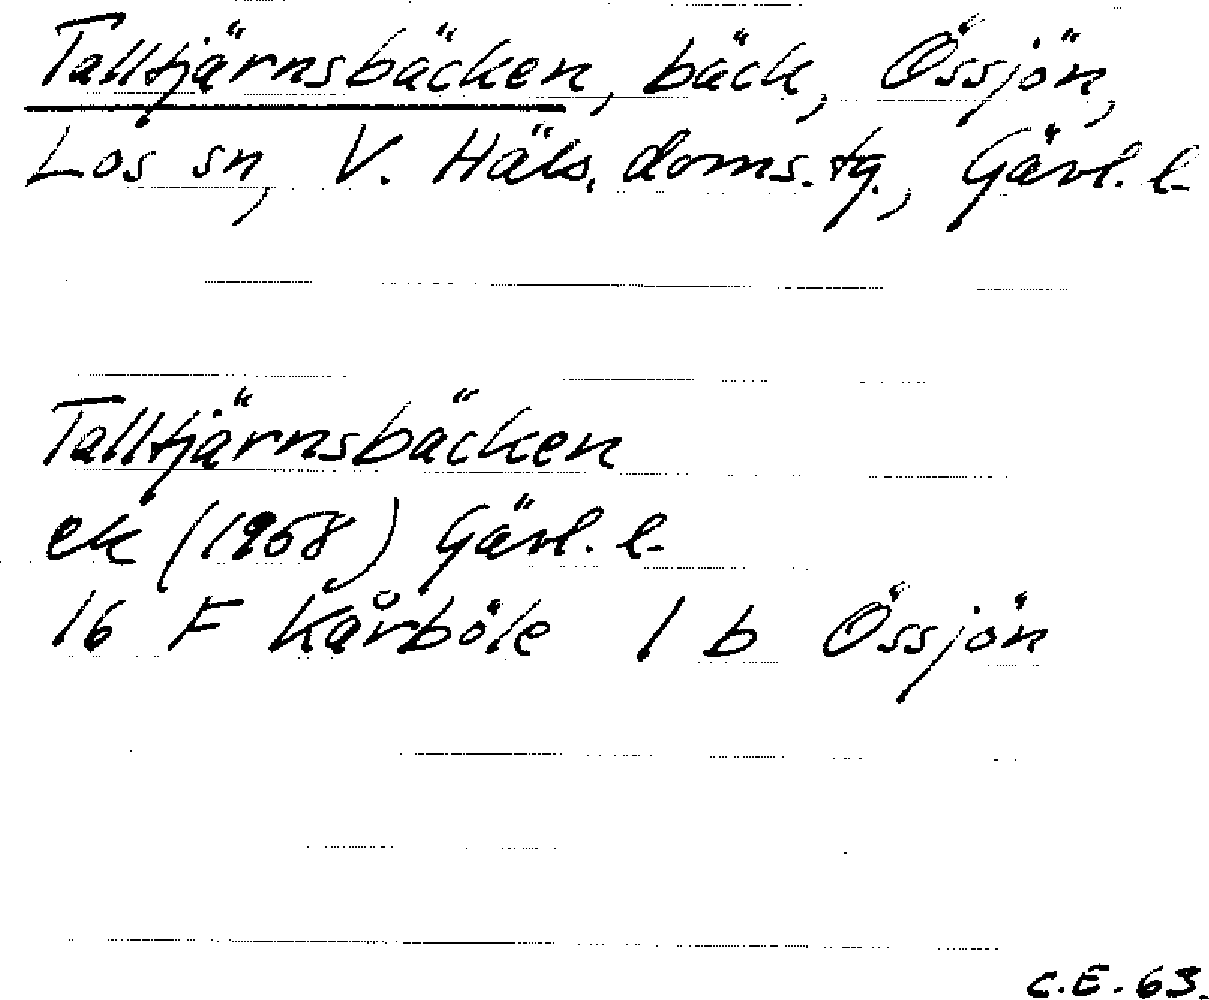 Talltjärnsbäcken, bäck, Össjön,
Los sn, V. Häls. doms. tg., Gävl. l.
Talltjärnsbäcken
ek (1958) Gävl. l.
16 F Kårböle 1 b Össjön
C.E. 63.